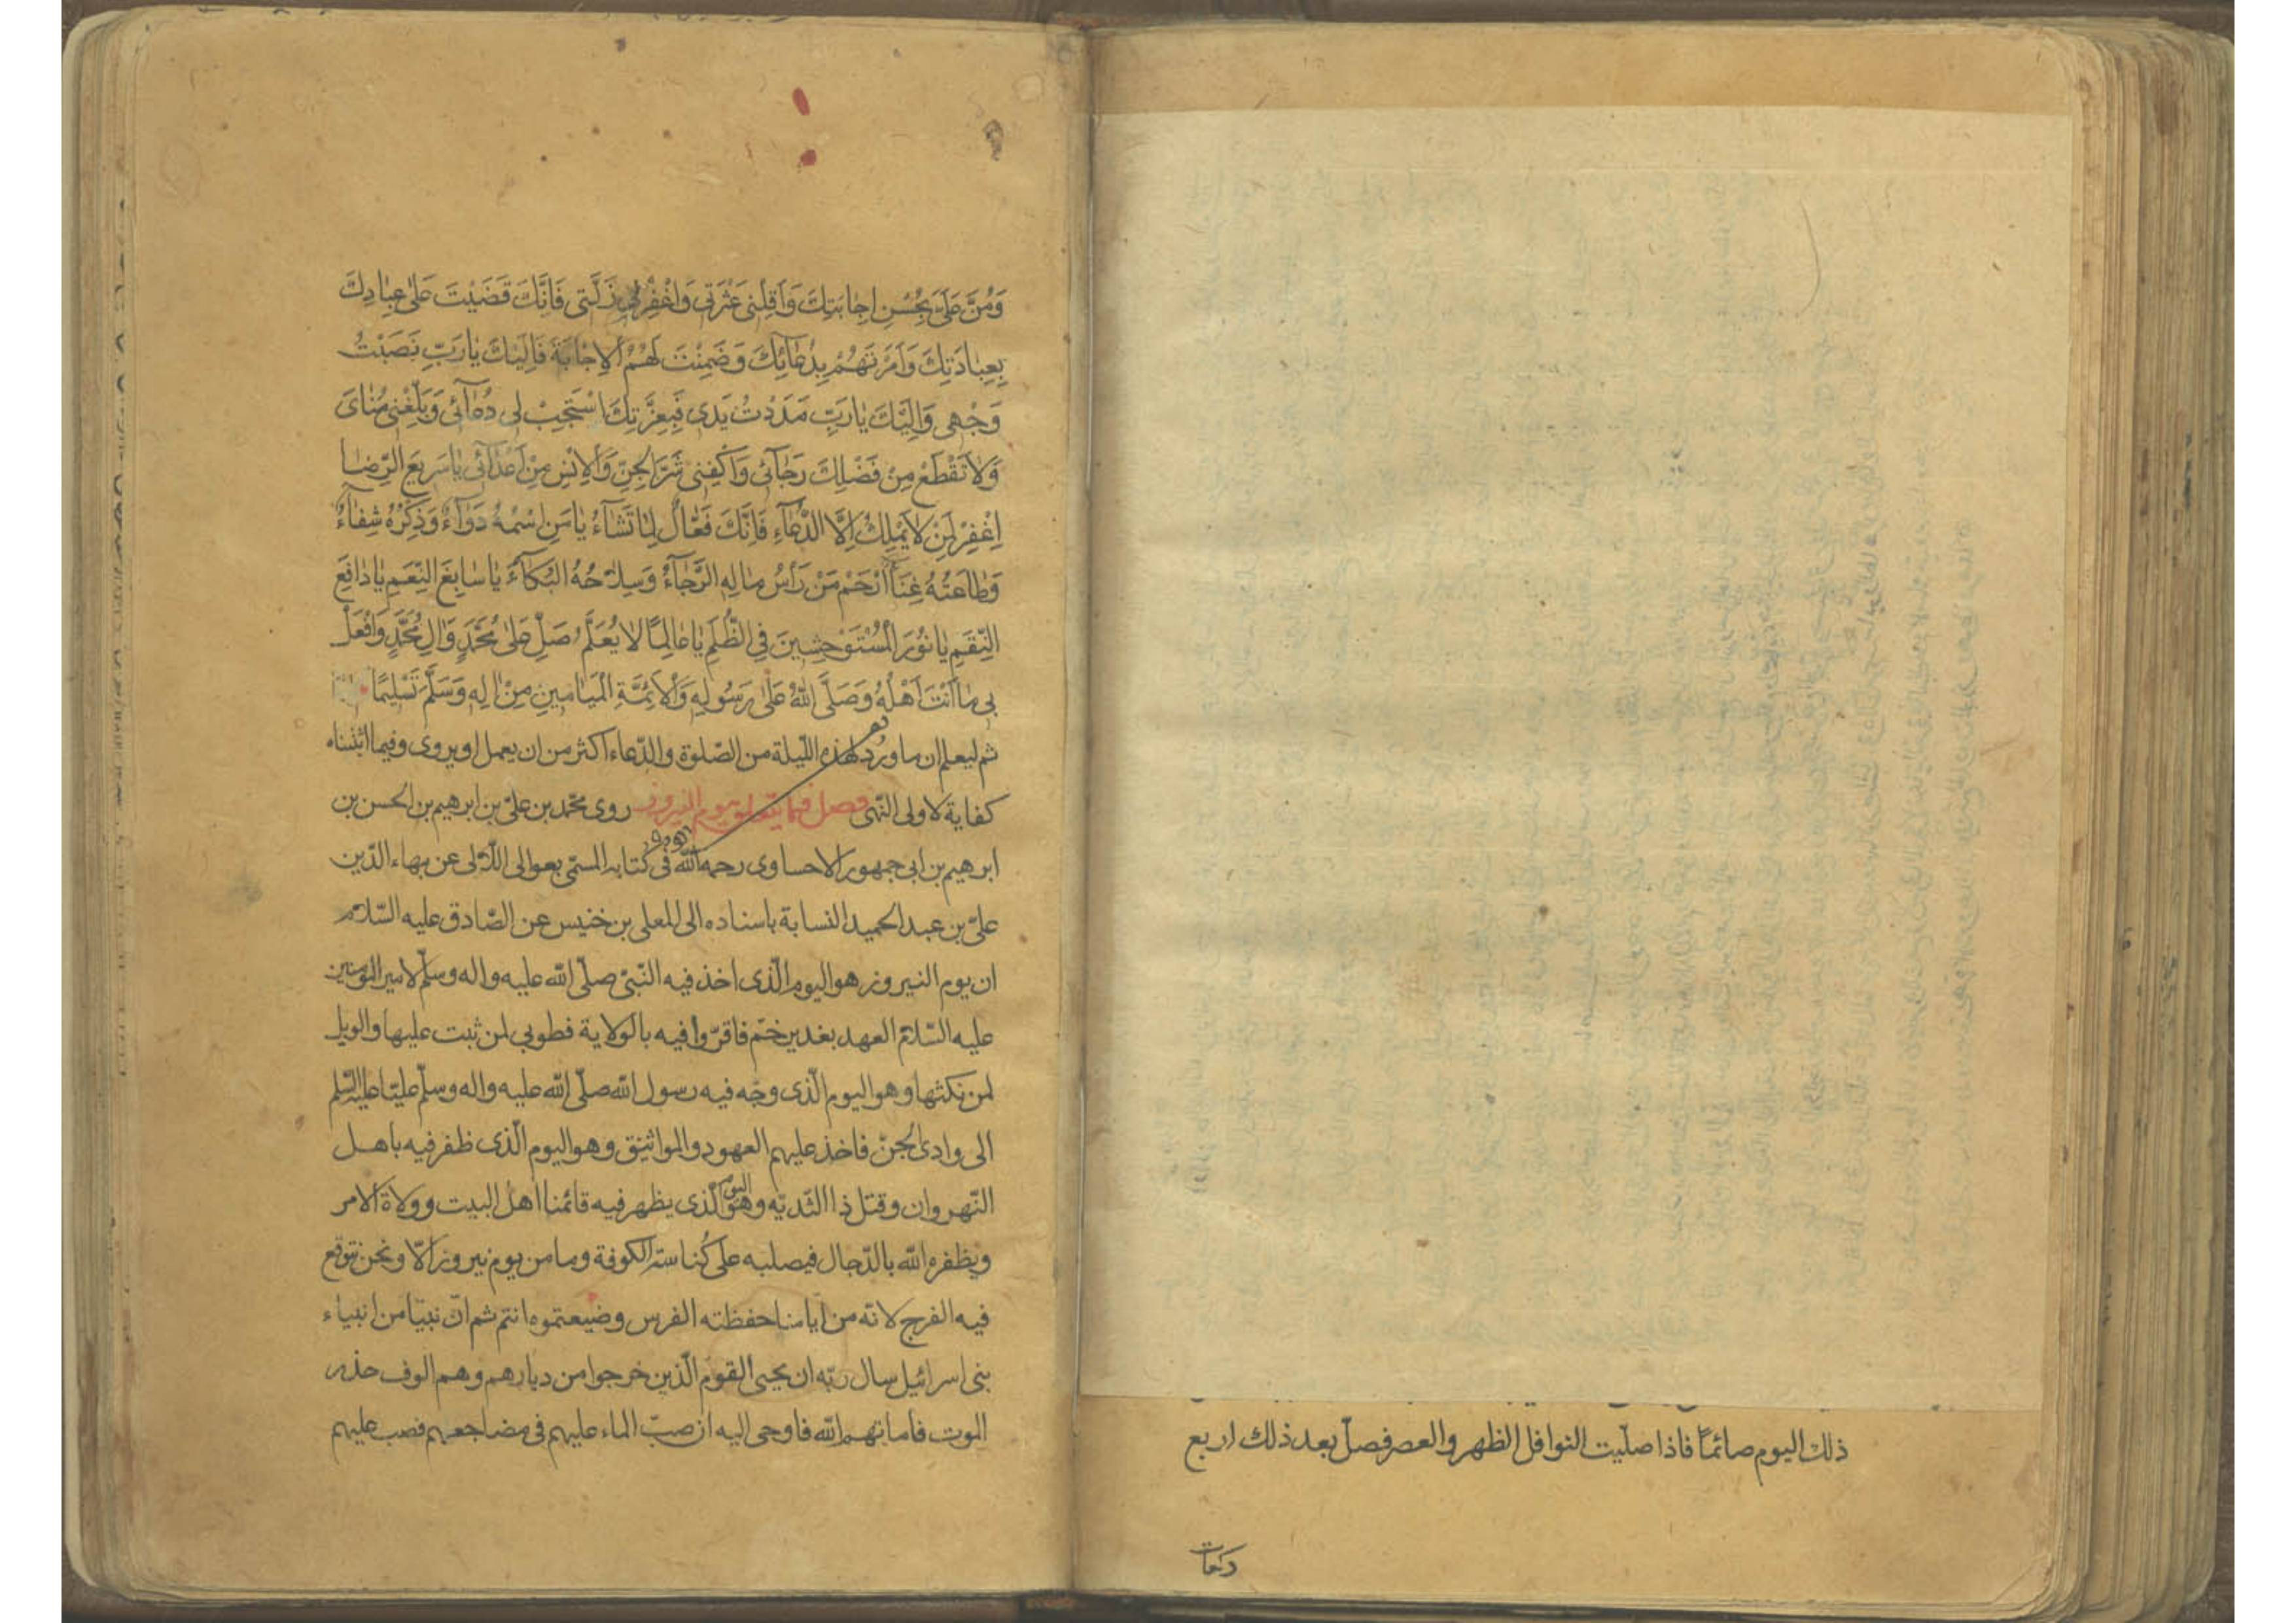 ذلك اليوم صائمًا فاذا صلّيت النوافل الظهر والعصر فصلّ بعد ذلك اربع
ركعات
وَمُنَّ عَلَىَّ بِحُسْنِ اِجٰابَتِكَ وَاَقِلْنى عَثْرَتى وَاغْفِرْ لى زَلَّتى فَاِنَّكَ قَضَيْتَ عَلىٰ عِبٰادِكَ
بِعِبٰادَتِكَ وَاَمَرْتَهُمْ بِدُعٰآئِكَ وَضَمِنْتَ لَهُمُ الْاِجٰابَةَ فَاِلَيْكَ يٰا رَبِّ نَصَبْتُ
وَجْهى وَاِلَيْكَ يٰا رَبِّ مَدَدْتُ يَدى فَبِعِزَّتِكَ اسْتَجِبْ لى دُعٰآئى وَبَلِّغْنى مُنٰاىَ
وَلاٰ تَقْطَعْ مِنْ فَضْلِكَ رَجٰآئى وَاكْفِنى شَرَّ الْجِنِّ وَالْاِنْسِ مِنْ اَعْدٰآئى يٰا سَريعَ الرِّضٰا
اِغْفِرْ لِمَنْ لاٰ يَمْلِكُ اِلَّا الدُّعٰآءَ فَاِنَّكَ فَعّٰالٌ لِمٰا تَشٰآءُ يٰا مَنِ اسْمُهُ دَوٰآءٌ وَذِكْرُهُ شِفٰآءٌ
وَطٰاعَتُهُ غِنًى اِرْحَمْ مَنْ رَأْسُ مٰالِهِ الرَّجٰآءُ وَسِلاٰحُهُ الْبُكٰآءُ يٰا سٰابِغَ النِّعَمِ يٰا دٰافِعَ
النِّقَمِ يٰا نُورَ الْمُسْتَوْحِشينَ فِى الظُّلَمِ يٰا عٰالِمًا لاٰ يُعَلَّمُ صَلِّ عَلىٰ مُحَمَّدٍ وَاٰلِ مُحَمَّدٍ وَافْعَلْ
بى مٰا اَنْتَ اَهْلُهُ وَصَلَّى اللّٰهُ عَلىٰ رَسُولِهِ وَالْاَئِمَّةِ الْمَيٰامينِ مِنْ اٰلِهِ وَسَلَّمَ تَسْليمًا
ثم ليعلم ان ما ورد لهذه الليلة من الصّلوة والدّعاء اكثر من ان يعمل او يروى وفيما اثبتناه
كفاية لاولى النّهى فصل فيما يتعلق بيوم النيروز روى محّمد بن علىّ بن ابرهيم بن الحسن بن
ابرهيم بن ابى جمهور الاحساوى رحمه الله فى كتابه المسمّى بعوالى اللّالى عن بهاء الدّين
علىّ بن عبد الحميد النسابة باسناده الى المعلى بن خنيس عن الصّادق عليه السّلام
ان يوم النيروز هو اليوم الّذى اخذ فيه النّبىّ صلّى الله عليه واله وسلّم لامير المؤمنين
عليه السّلام العهد بغدير خمّ فاقرّوا فيه بالولاية فطوبى لمن ثبت عليها والويل
لمن نكثها وهو اليوم الّذى وجّه فيه رسول الله صلّى الله عليه واله وسلّم عليّا عليه السّلم
الى وادى الجنّ فاخذ عليهم العهود والمواثيق وهو اليوم الّذى ظفر فيه باهل
النّهروان وقتل ذا الثّديّه وهو اليوم الّذى يظهر فيه قائمنا اهل البيت وولاة الامر
ويظفره الله بالدّجال فيصلبه على كُناسة الكوفة وما من يوم نيروز الّا ونحن نتوقع
فيه الفرج لانّه من ايامنا حفظته الفرس وضيعتموه انتم ثم انّ نبيّا من انبياء
بنى اسرائيل سال ربّه ان يحيى القوم الّذين خرجوا من ديارهم وهم الوف حذر
الموت فاماتهم الله فاوحى اليه ان صبّ الماء عليهم فى مضاجعهم فصب عليهم